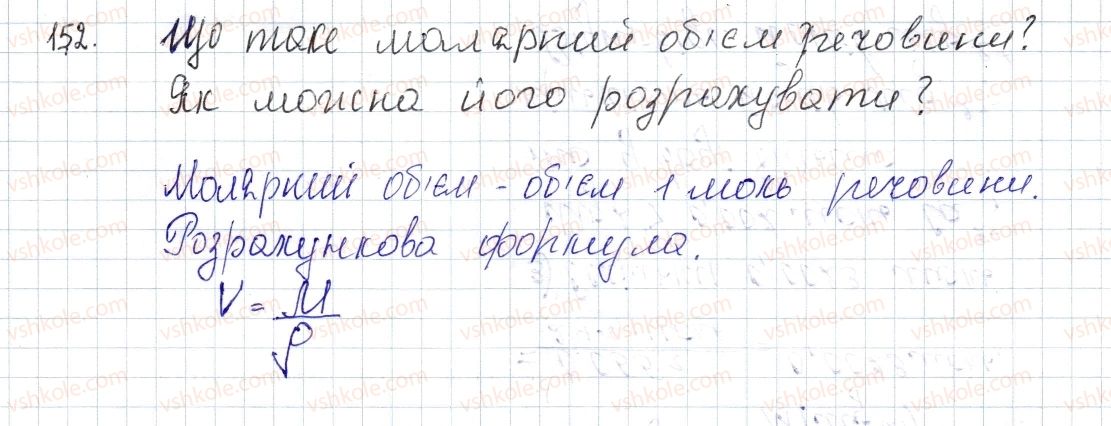 152. Що таке молярний об'єм речовини?
Як можна його розрахувати?
Молярний об'єм - об'єм 1 моль речовини.
Розрахункова формула.
V = M / ρ